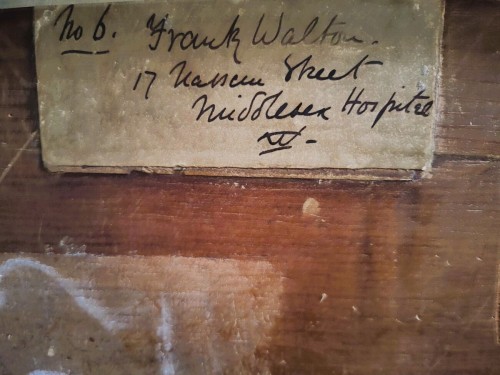 No 6. Frank Walton.
17 Nassau Street
Middlesex Hospital
W.-